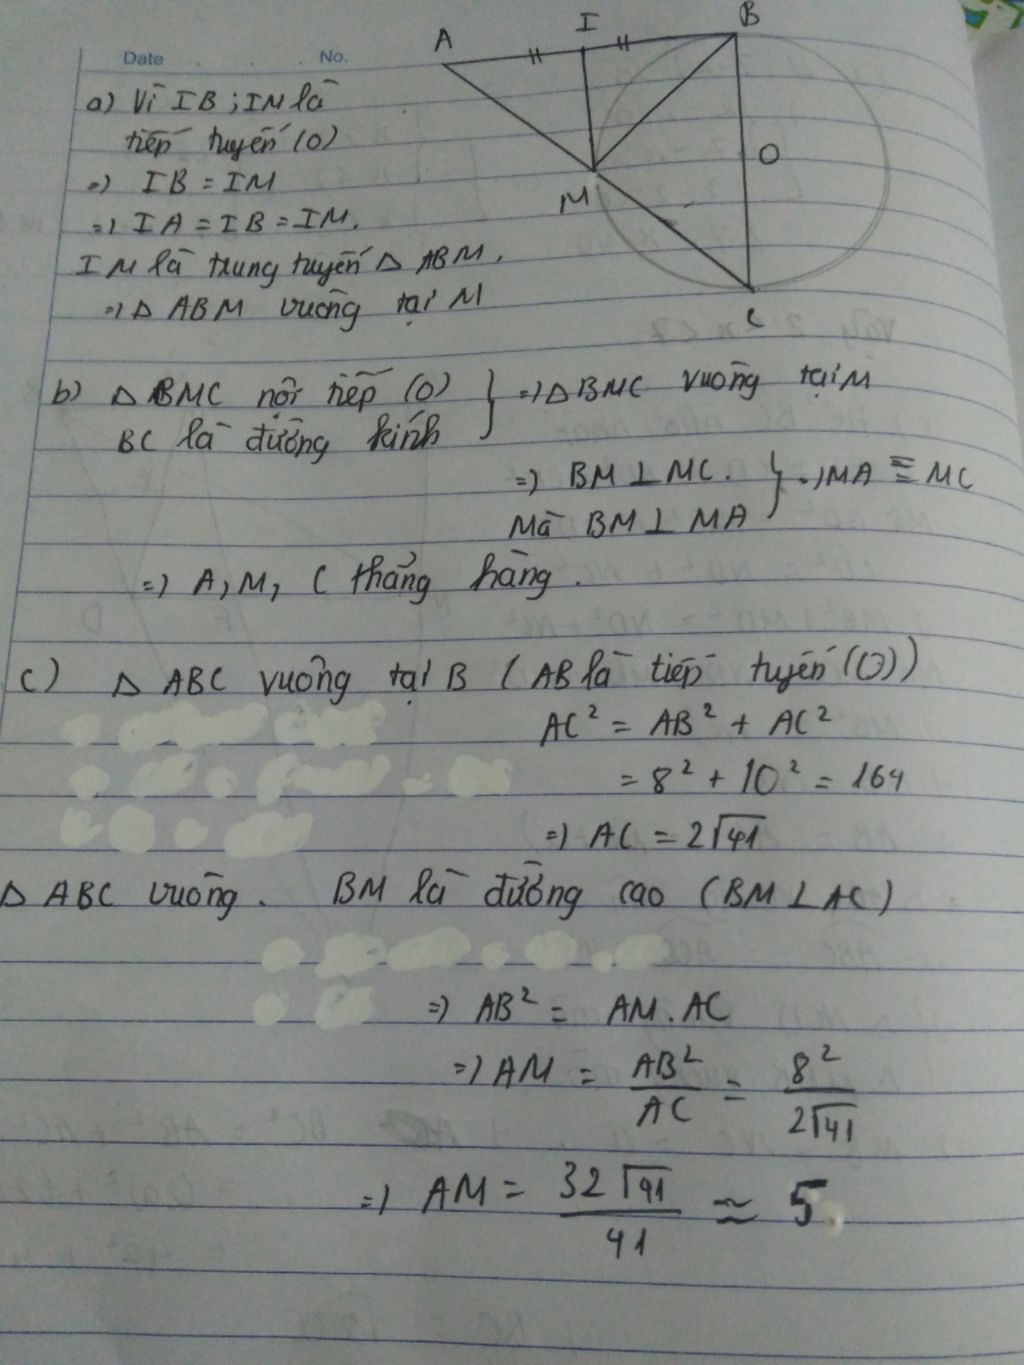 A I B
Date . . No.
a) Vì IB ; IM là
tiếp tuyến (O)
=> IB = IM
O
=> IA = IB = IM.
M
IM là trung tuyến Δ ABM.
=> Δ ABM vuông tại M
C
b) Δ BMC nội tiếp (O) } => Δ BMC vuông tại M
BC là đường kính
=> BM ⊥ MC. } => MA ≡ MC
Mà BM ⊥ MA
=> A, M, C thẳng hàng.
c) Δ ABC vuông tại B (AB là tiếp tuyến (O))
AC² = AB² + AC²
= 8² + 10² = 164
=> AC = 2√41
Δ ABC vuông. BM là đường cao (BM ⊥ AC)
=> AB² = AM.AC
=> AM = AB²/AC = 8²/2√41
=> AM = 32√41/41 ≈ 5